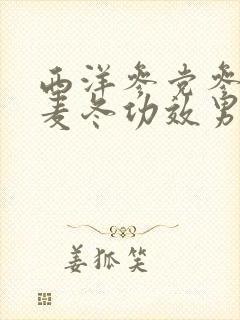 西洋参党参
麦冬功效男
姜狐笑